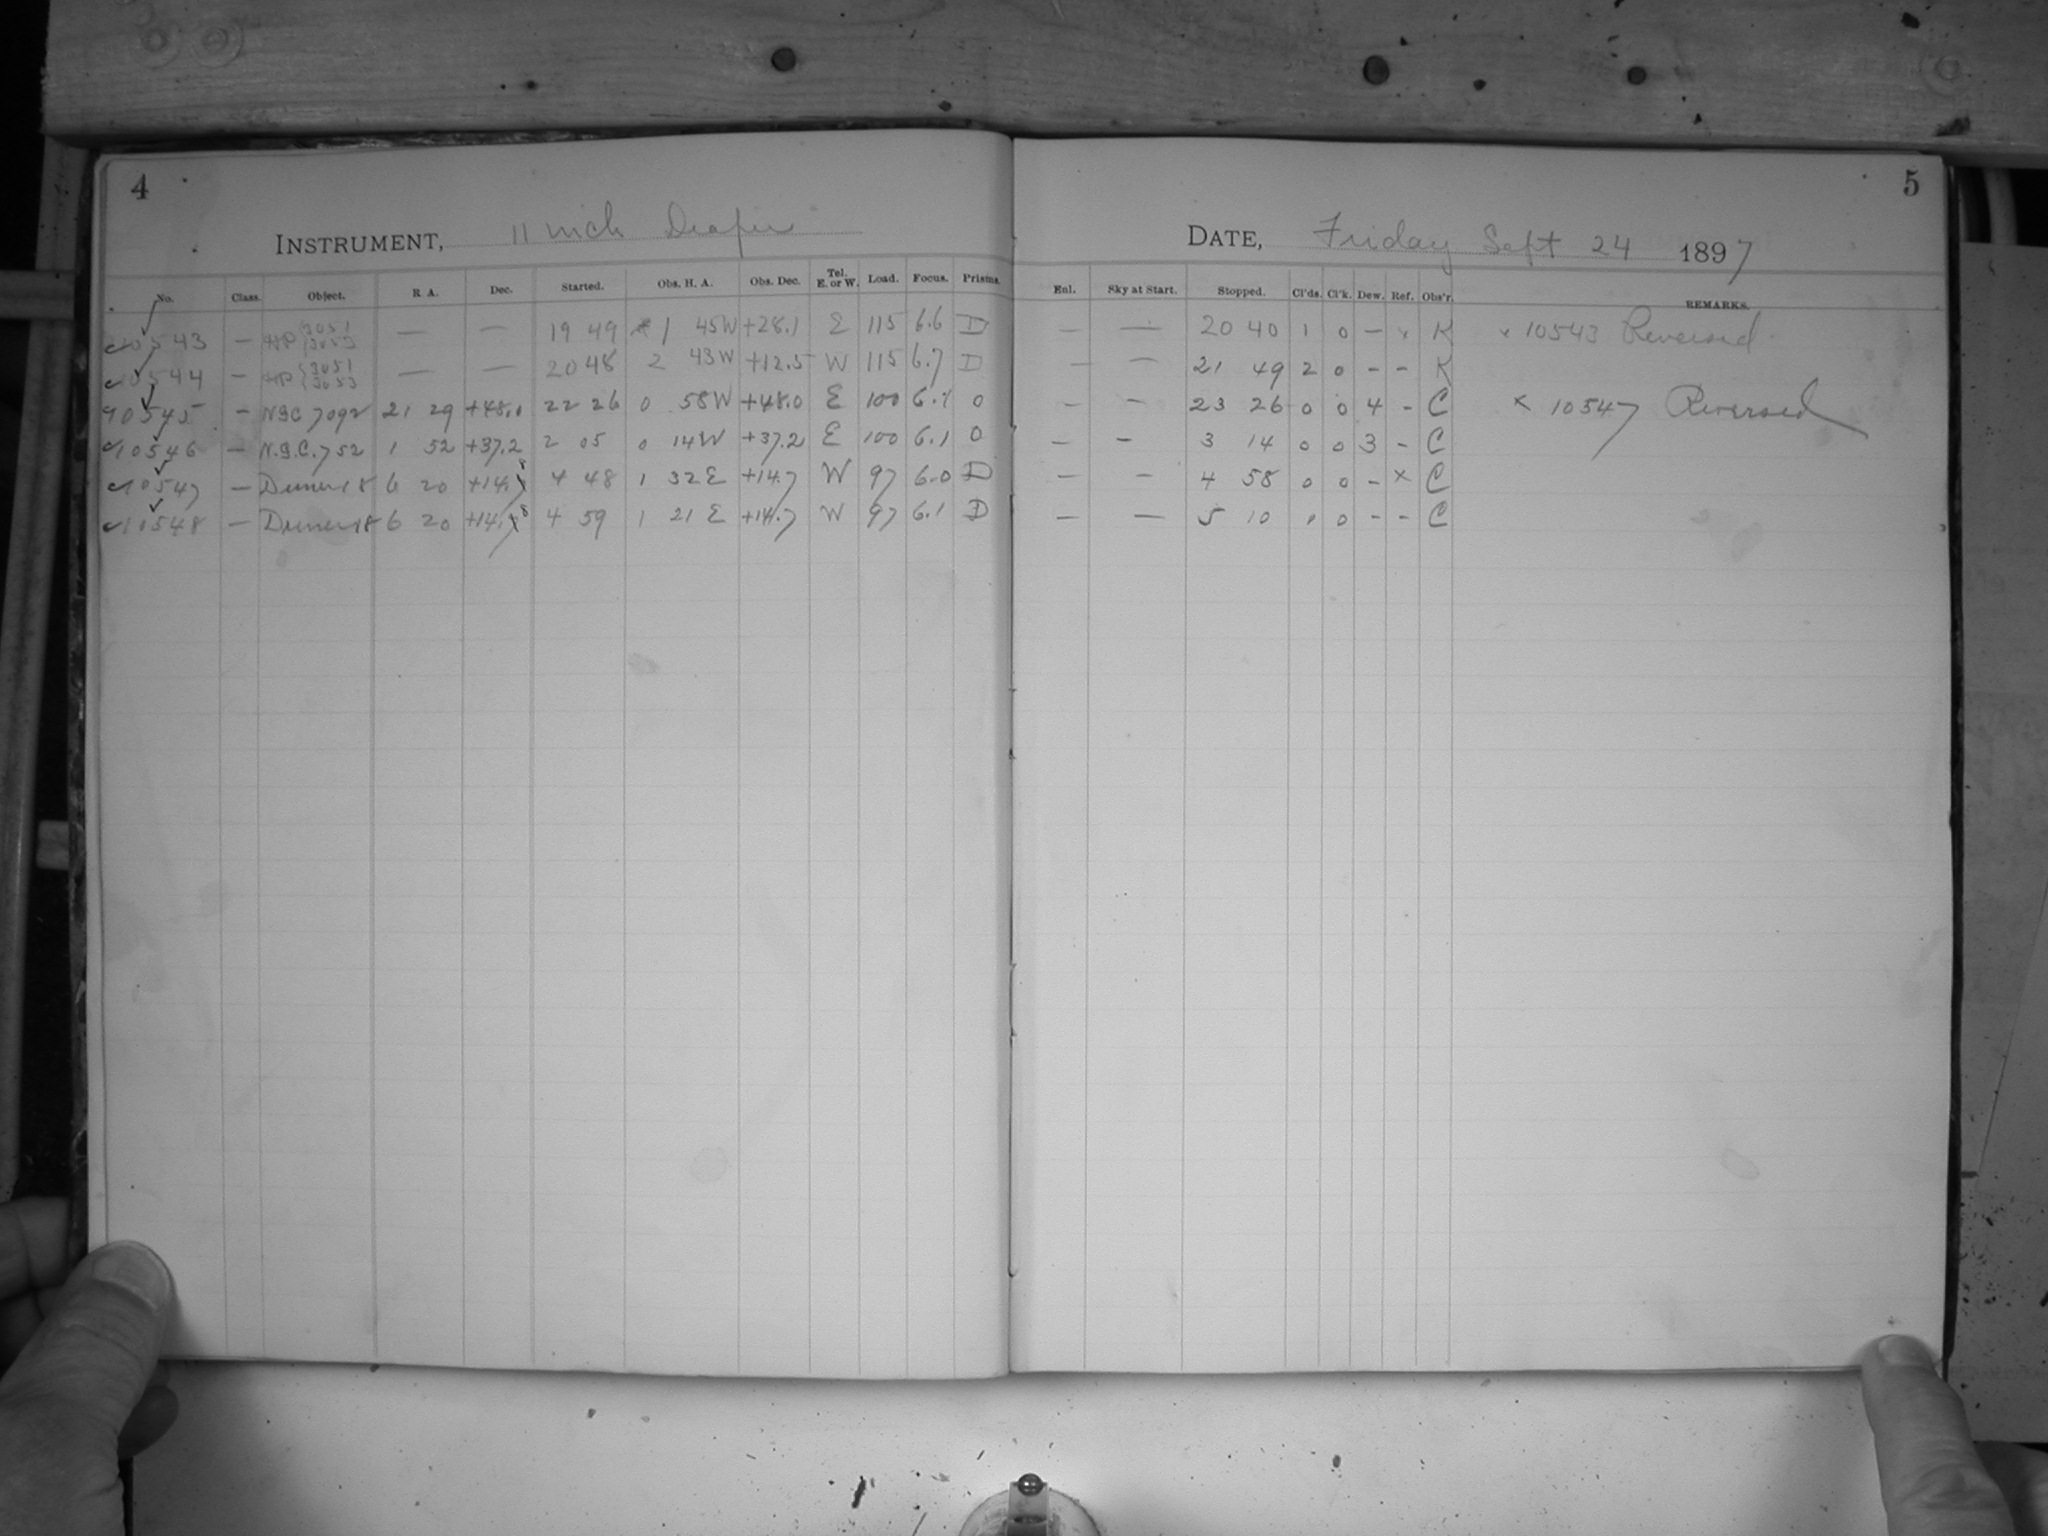 4
INSTRUMENT, 11 inch Draper
No. Class. Object. R A. Dec. Started. Obs. H. A. Obs. Dec. Tel. E. or W. Load. Focus. Prisms.
10543 — HP {3051 3053 — — 19 49 1 45W +28.1 E 115 6.6 D
10544 — HP {3051 3053 — — 20 48 2 43W +12.5 W 115 6.7 D
10545 — NGC 7092 21 29 +48.0 22 26 0 58W +48.0 E 100 6.1 0
10546 — N.G.C. 752 1 52 +37.2 2 05 0 14W +37.2 E 100 6.1 0
10547 — 18 6 20 +14.8 4 48 1 32E +14.7 W 97 6.0 D
10548 — 18 6 20 +14.8 4 59 1 21 E +14.7 W 97 6.1 D
5
DATE, Friday Sept 24 1897
Enl. Sky at Start. Stopped. Cl'ds. Cl'k. Dew. Ref. Obs'r. REMARKS.
— — 20 40 1 0 — x K x 10543 Reversed
— — 21 49 2 0 - - K
— — 23 26 0 0 4 - C x 10547 Reversed
— — 3 14 0 0 3 - C
— — 4 58 0 0 - x C
— — 5 10 0 0 - - C